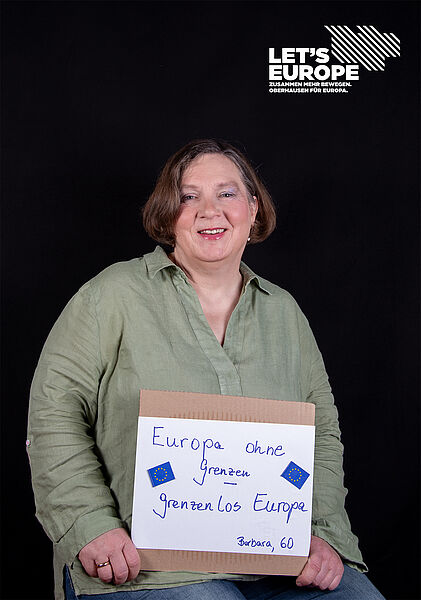 LET'S
EUROPE
ZUSAMMEN MEHR BEWEGEN.
OBERHAUSEN FÜR EUROPA.
Europa ohne
grenzen
–
grenzenlos Europa
Barbara, 60